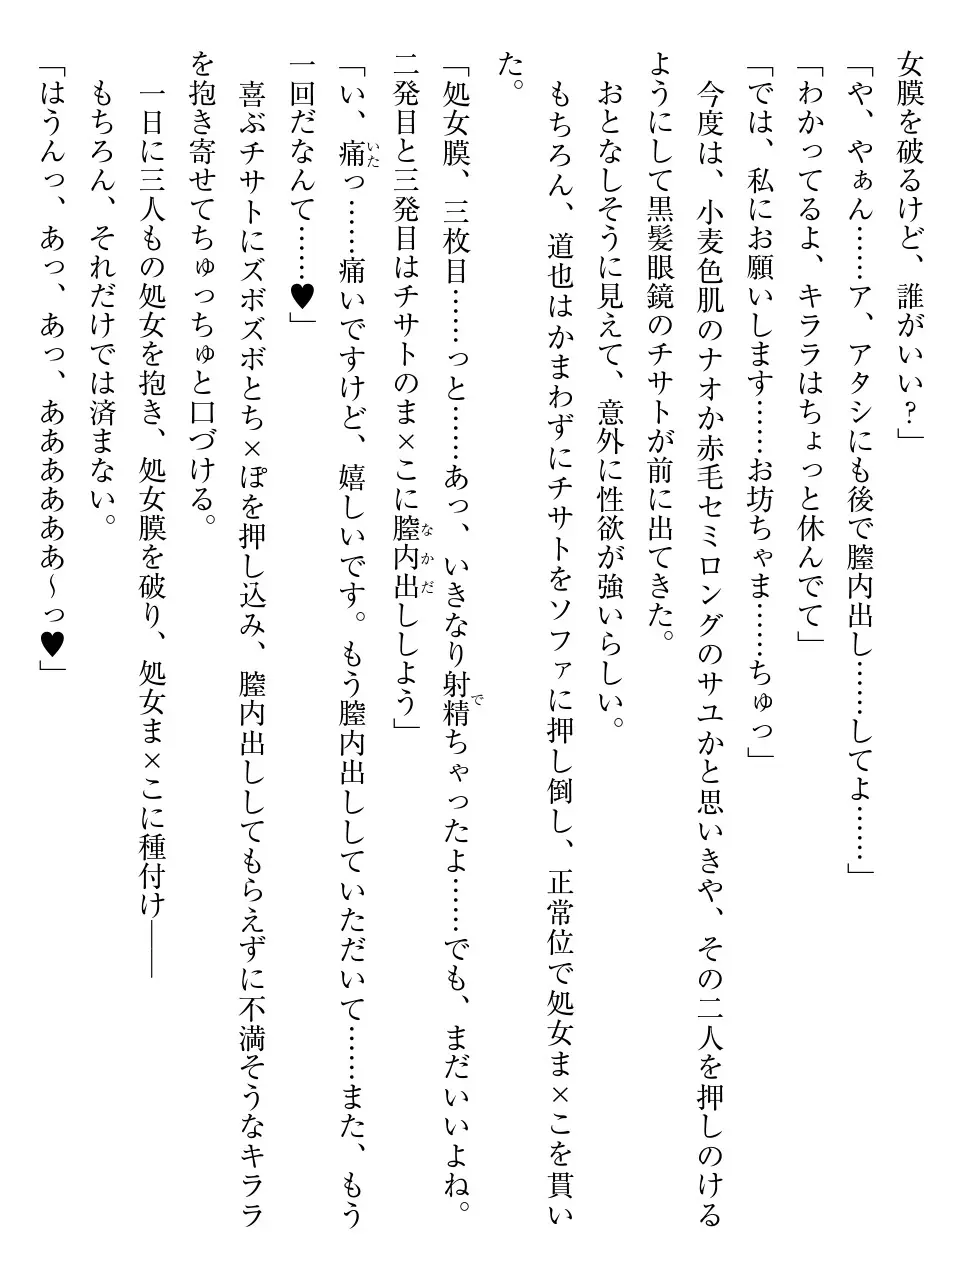 女膜を破るけど、誰がいい？」
「や、やぁん……ア、アタシにも後で膣内出し……してよ……」
「わかってるよ、キララはちょっと休んでて」
「では、私にお願いします……お坊ちゃま……ちゅっ」
　今度は、小麦色肌のナオか赤毛セミロングのサユかと思いきや、その二人を押しのける
ようにして黒髪眼鏡のチサトが前に出てきた。
　おとなしそうに見えて、意外に性欲が強いらしい。
　もちろん、道也はかまわずにチサトをソファに押し倒し、正常位で処女ま×こを貫い
た。
「処女膜、三枚目……っと……あっ、いきなり射精ちゃったよ……でも、まだいいよね。
二発目と三発目はチサトのま×こに膣内出ししよう」
「い、痛っ……痛いですけど、嬉しいです。もう膣内出ししていただいて……また、もう
一回だなんて……♥」
　喜ぶチサトにズボズボとち×ぽを押し込み、膣内出ししてもらえずに不満そうなキララ
を抱き寄せてちゅっちゅと口づける。
　一日に三人もの処女を抱き、処女膜を破り、処女ま×こに種付け――
　もちろん、それだけでは済まない。
「はうんっ、あっ、あっ、ああああああ～っ♥」